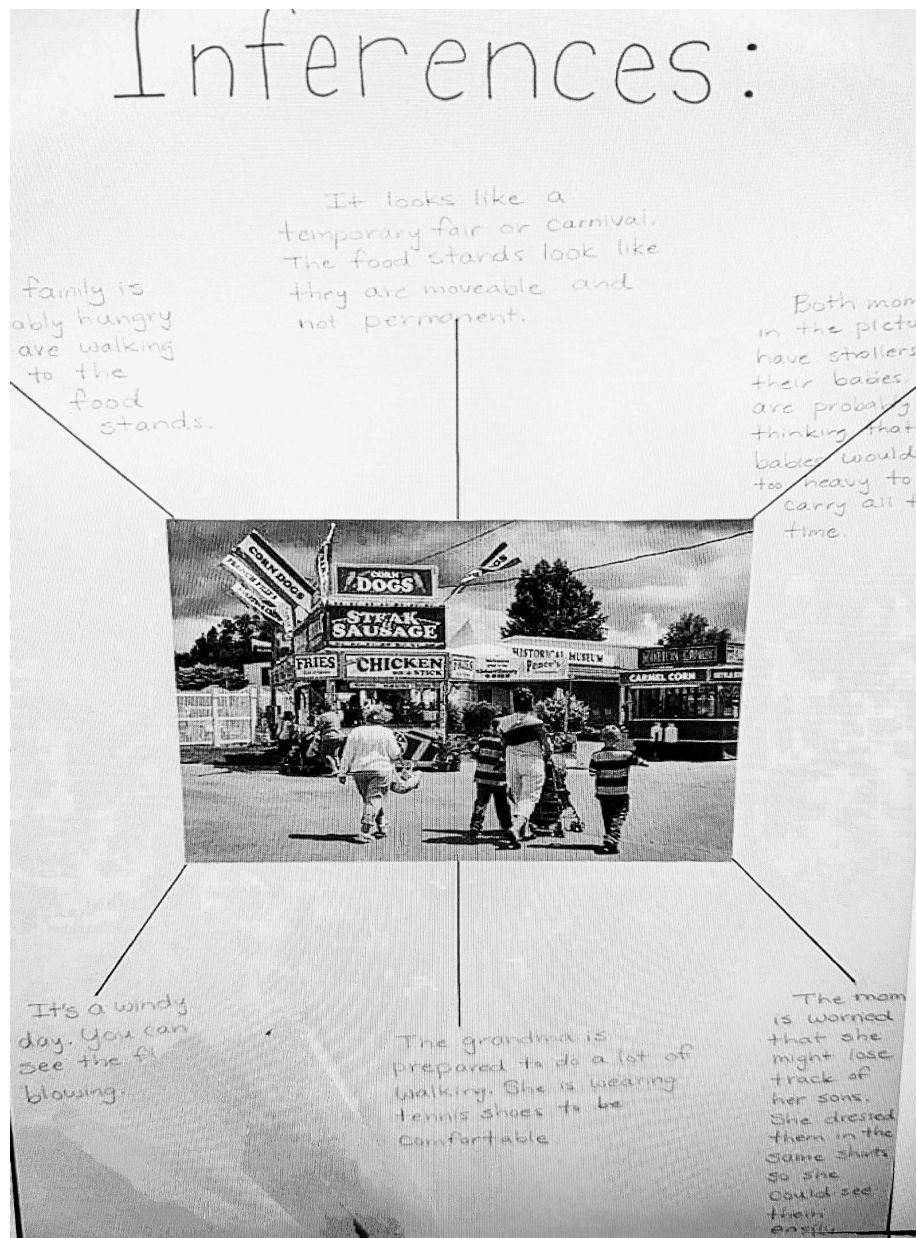 Inferences:
It looks like a
temporary fair or carnival.
The food stands look like
they are moveable and
not permanent.
family is
ably hungry
are walking
to the
food
stands.
Both mom
in the pictu
have strollers
their babies.
are probably
thinking that
babies would
too heavy to
carry all t
time.
CORN DOGS
FRENCH FRIES
CORN
DOGS
STEAK
SAUSAGE
FRIES
CHICKEN
ON A STICK
FRIES
HISTORICAL MUSEUM
Pence's
CARMEL CORN
It's a windy
day. You can
see the fl
blowing.
The grandma is
prepared to do a lot of
walking. She is wearing
tennis shoes to be
comfortable
The mom
is worried
that she
might lose
track of
her sons.
She dressed
them in the
same shirts
so she
could see
them
easily.